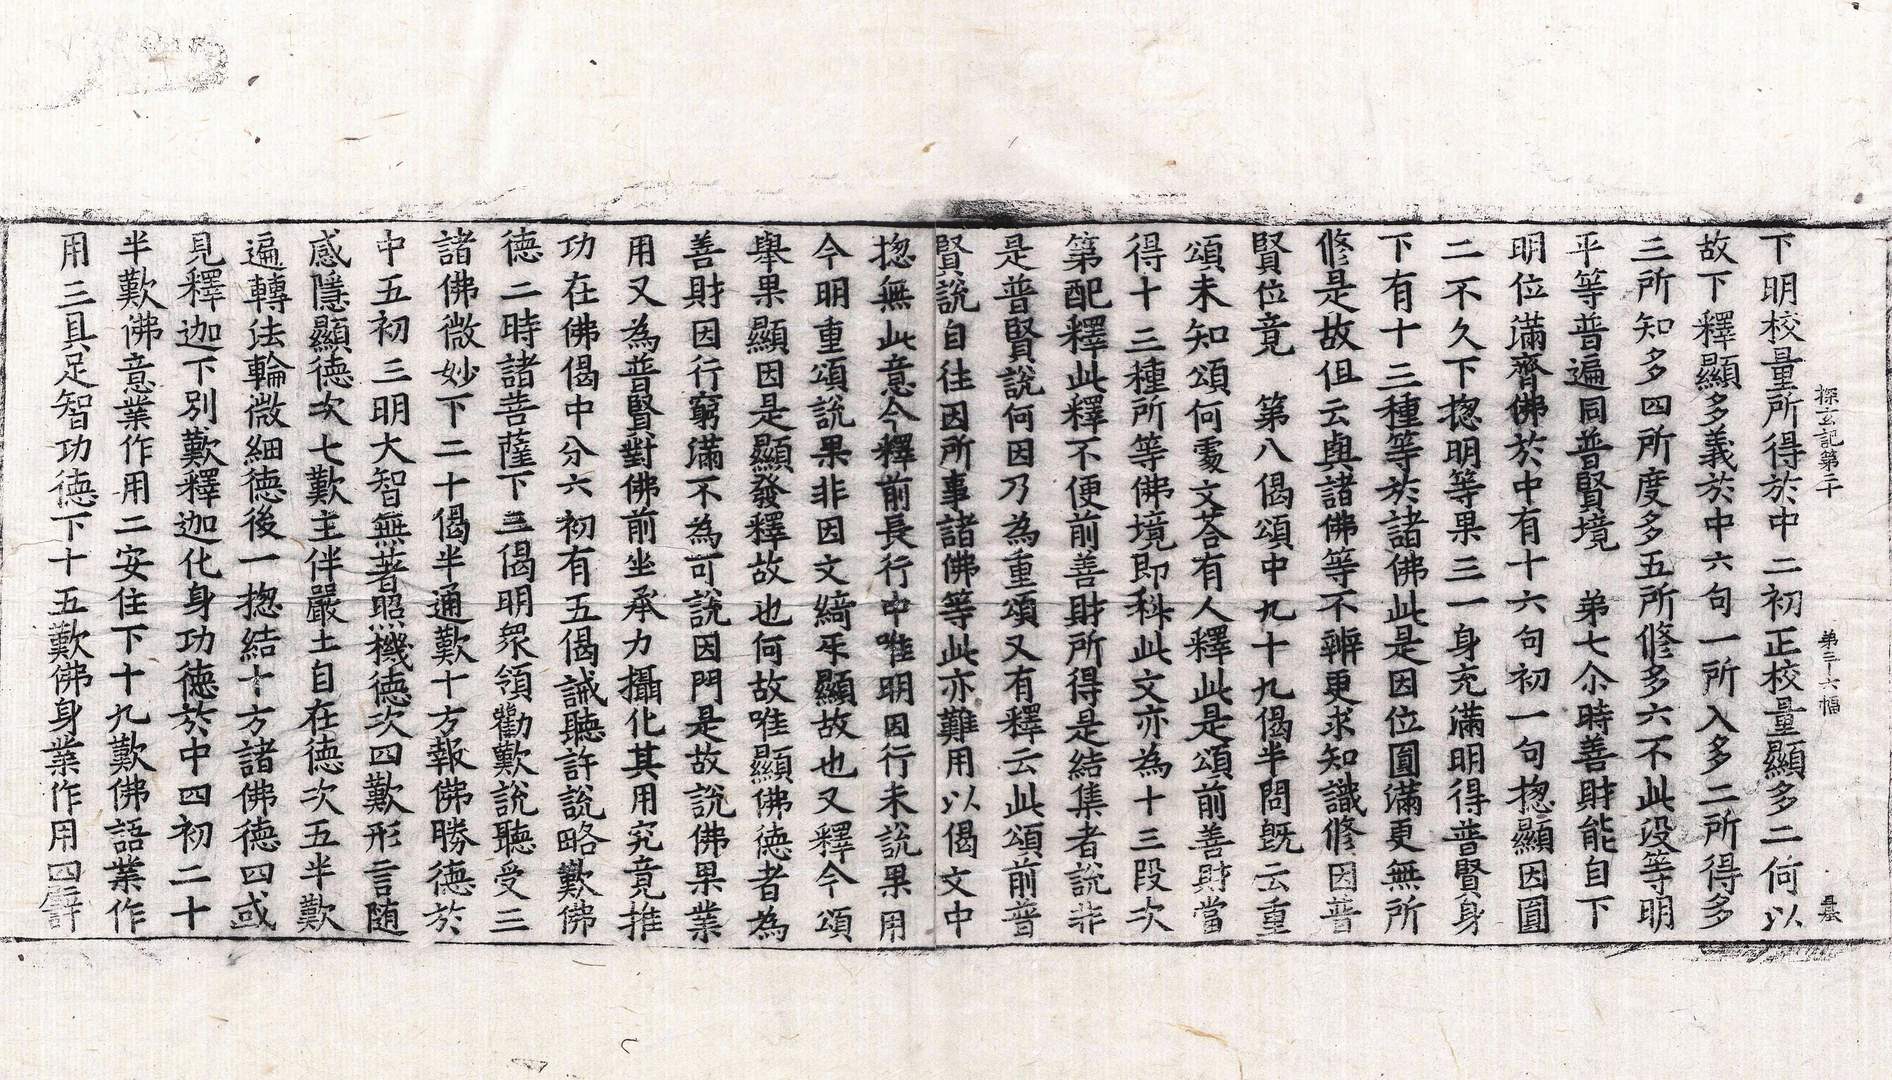 探玄記第二十　第三十六幅　晨
下明校量所得於中二初正校量顯多二何以
故下釋顯多義於中六句一所入多二所得多
三所知多四所度多五所修多六不此没等明
平等普遍同普賢境　弟七尒時善財能自下
明位滿齊佛於中有十六句初一句揔顯因圓
二不久下揔明等果三一身充滿明得普賢身
下有十三種等於諸佛此是因位圓滿更無所
修是故但云與諸佛等不辨更求知識修因普
賢位竟　第八偈頌中九十九偈半問旣云重
頌未知頌何處文荅有人釋此是頌前善財當
得十三種所等佛境即科此文亦為十三段次
第配釋此釋不便前善財所得是結集者說非
是普賢說何因乃為重頌又有釋云此頌前普
賢說自往因所事諸佛等此亦難用以偈文中
揔無此意今釋前長行中唯明因行未說果用
今明重頌說果非因文綺互顯故也又釋今頌
舉果顯因是顯發釋故也何故唯顯佛德者為
善財因行窮滿不為可說因門是故說佛果業
用又為普賢對佛前坐承力攝化其用究竟推
功在佛偈中分六初有五偈誡聽許說略歎佛
德二時諸菩薩下三偈明衆領勸歎說聽受三
諸佛微妙下二十偈半通歎十方報佛勝德於
中五初三明大智無著照機德次四歎形言随
感隱顯德次七歎主伴嚴土自在德次五半歎
遍轉法輪微細德後一揔結十方諸佛德四或
見釋迦下別歎釋迦化身功德於中四初二十
半歎佛意業作用二安住下十九歎佛語業作
用三具足智功德下十五歎佛身業作用四譬